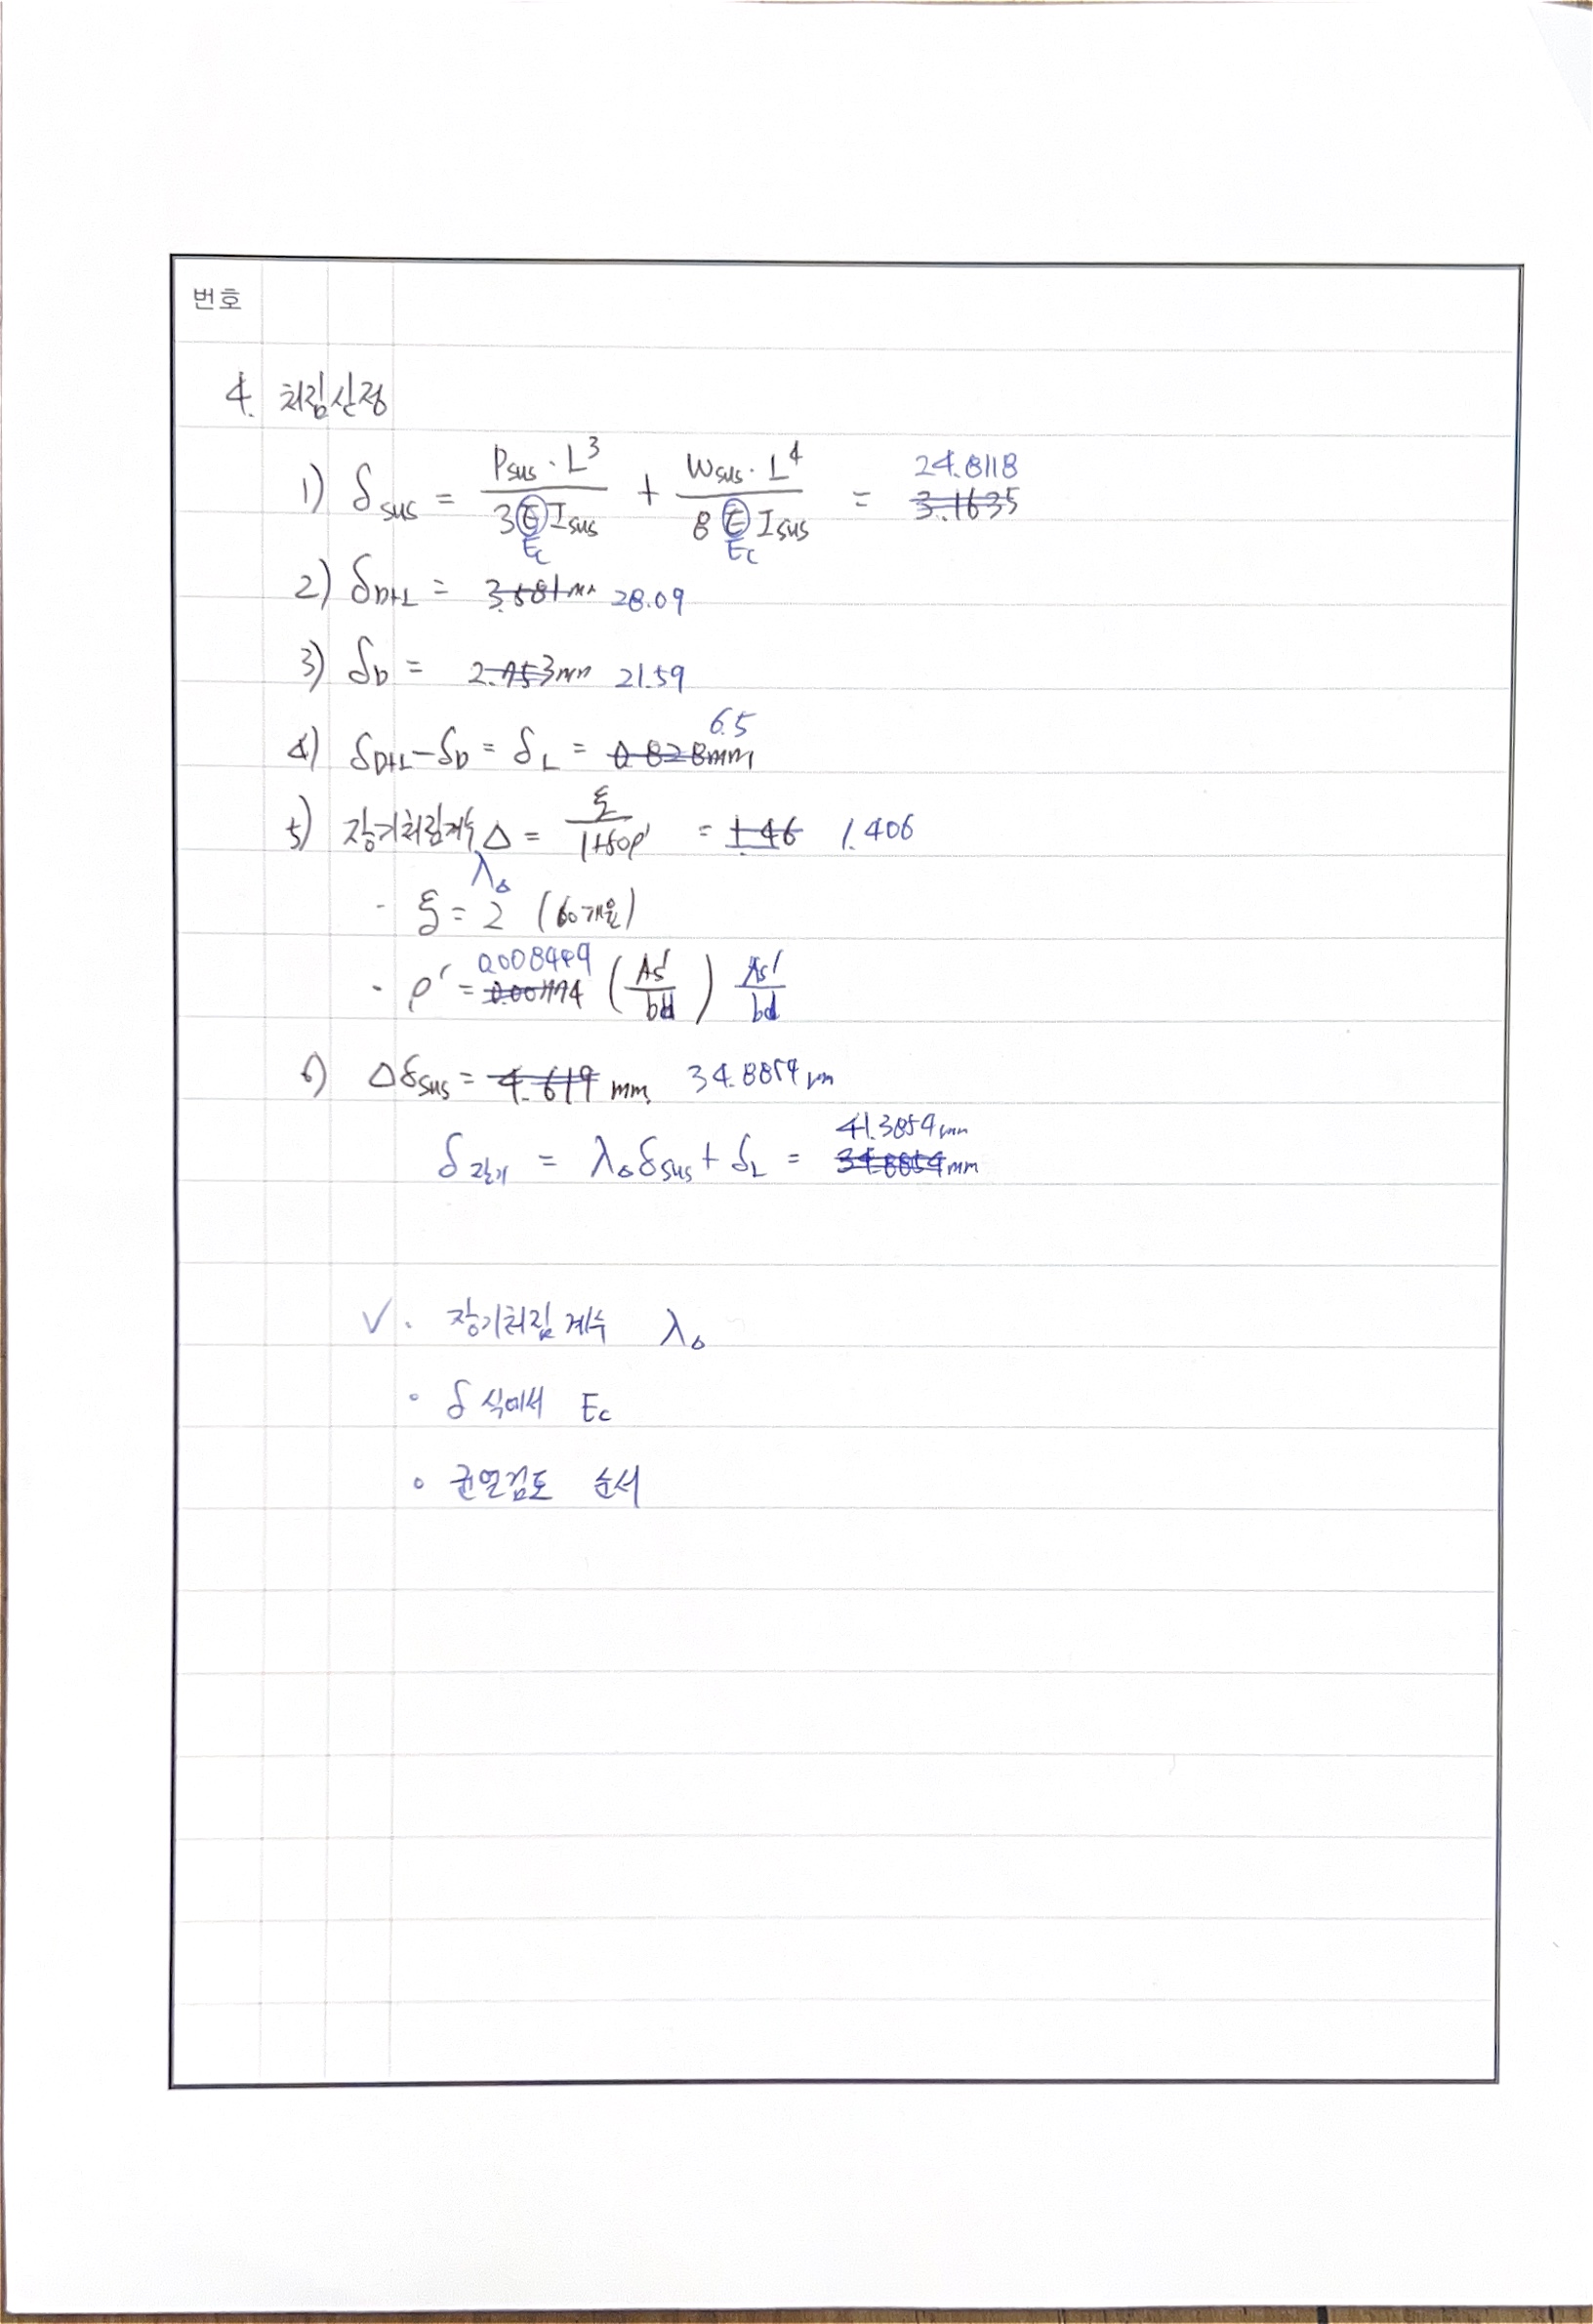 번호
4. 처짐산정
1) δsus = Psus·L³ / 3EIsus + Wsus·L⁴ / 8EIsus = 3.1635 24.8118
Ec Ec
2) δD+L = 3.581mm 28.09
3) δD = 2.753mm 21.59
4) δD+L − δD = δL = 0.828mm 6.5
5) 장기처짐계수 Δ = ξ / 1+50ρ' = 1.46 1.406
λΔ
- ξ = 2 (60개월)
- ρ' = 0.008449 (As' / bd) As' / bd
6) Δδsus = 4.619 mm 34.8854 mm
δ장기 = λΔδsus + δL = 34.8854mm 41.3854mm
✓ · 장기처짐계수 λΔ
∘ δ 식에서 Ec
∘ 균열검토 순서